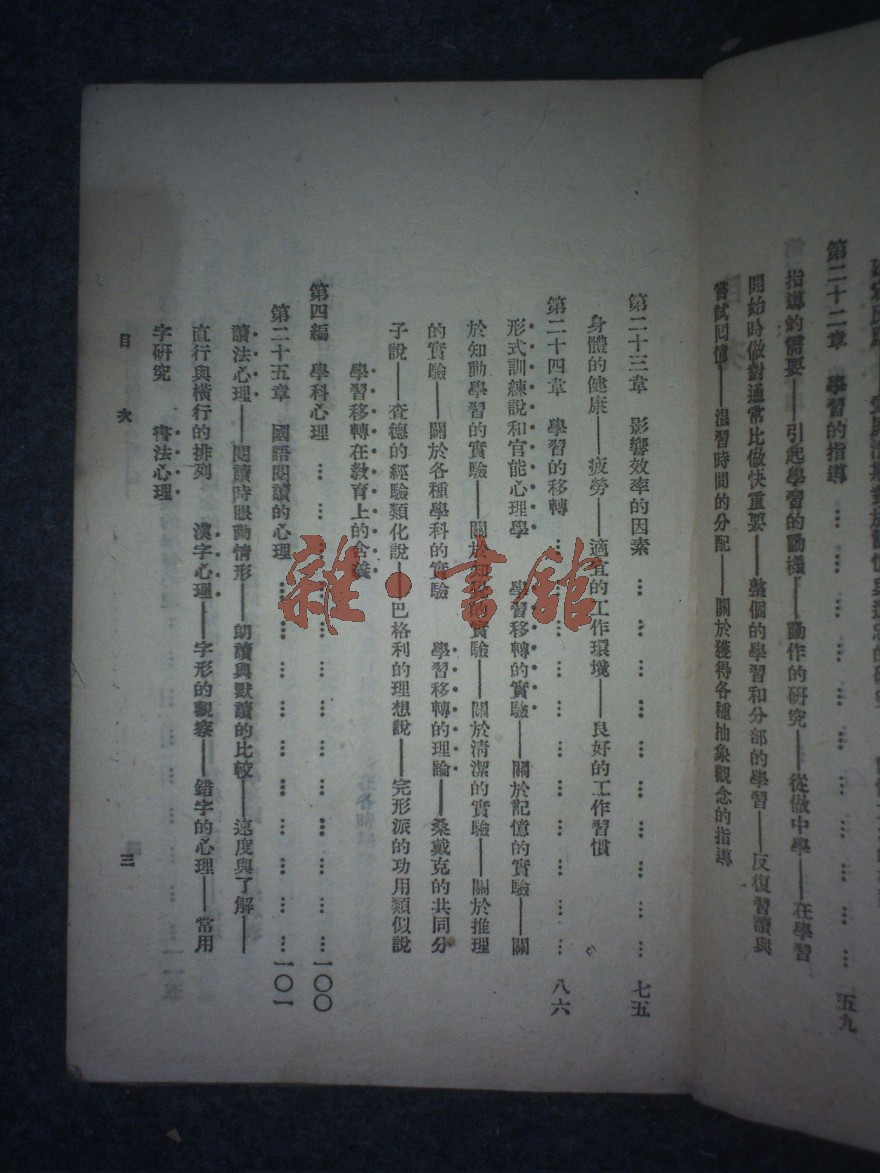 第二十二章　學習的指導 … … … … … … … … … 五九
指導的需要——引起學習的動機——動作的研究——從做中學——在學習
開始時做對通常比做快重要——整個的學習和分部的學習——反復習讀與
嘗試回憶——溫習時間的分配——關於獲得各種抽象觀念的指導
第二十三章　影響效率的因素 … … … … … … … … … … 七五
身體的健康——疲勞——適宜的工作環境——良好的工作習慣
第二十四章　學習的移轉 … … … … … … … … … … … 八六
形式訓練說和官能心理學　學習移轉的實驗——關於記憶的實驗——關
於知動學習的實驗——關於知覺的實驗——關於清潔的實驗——關於推理
的實驗——關於各種學科的實驗　學習移轉的理論——桑戴克的共同分
子說——查德的經驗類化說——巴格利的理想說——完形派的功用類似說
學習移轉在教育上的含義
第四編　學科心理 … … … … … … … … … … … … 一〇〇
第二十五章　國語閱讀的心理 … … … … … … … … … … 一〇一
讀法心理——閱讀時眼動情形——朗讀與默讀的比較——速度與了解——
直行與橫行的排列　漢字心理——字形的觀察——錯字的心理——常用
字研究　書法心理
目　次　三
雜·書館